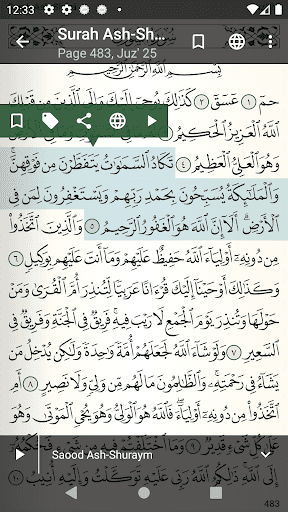 12:33
Surah Ash-Sh…
Page 483, Juz' 25
بِسْمِ ٱللَّهِ ٱلرَّحْمَٰنِ ٱلرَّحِيمِ
حمٓ ١ عٓسٓقٓ ٢ كَذَٰلِكَ يُوحِىٓ إِلَيْكَ وَإِلَى ٱلَّذِينَ مِن قَبْلِكَ
ٱللَّهُ ٱلْعَزِيزُ ٱلْحَكِيمُ
وَهُوَ ٱلْعَلِىُّ ٱلْعَظِيمُ ٤ تَكَادُ ٱلسَّمَٰوَٰتُ يَتَفَطَّرْنَ مِن فَوْقِهِنَّ ۚ
وَٱلْمَلَٰٓئِكَةُ يُسَبِّحُونَ بِحَمْدِ رَبِّهِمْ وَيَسْتَغْفِرُونَ لِمَن فِى
ٱلْأَرْضِ ۗ أَلَآ إِنَّ ٱللَّهَ هُوَ ٱلْغَفُورُ ٱلرَّحِيمُ ٥ وَٱلَّذِينَ ٱتَّخَذُوا۟
مِن دُونِهِۦٓ أَوْلِيَآءَ ٱللَّهُ حَفِيظٌ عَلَيْهِمْ وَمَآ أَنتَ عَلَيْهِم بِوَكِيلٍ ٦
وَكَذَٰلِكَ أَوْحَيْنَآ إِلَيْكَ قُرْءَانًا عَرَبِيًّا لِّتُنذِرَ أُمَّ ٱلْقُرَىٰ وَمَنْ
حَوْلَهَا وَتُنذِرَ يَوْمَ ٱلْجَمْعِ لَا رَيْبَ فِيهِ ۚ فَرِيقٌ فِى ٱلْجَنَّةِ وَفَرِيقٌ فِى
ٱلسَّعِيرِ ٧ وَلَوْ شَآءَ ٱللَّهُ لَجَعَلَهُمْ أُمَّةً وَٰحِدَةً وَلَٰكِن يُدْخِلُ مَن
يَشَآءُ فِى رَحْمَتِهِۦ ۚ وَٱلظَّٰلِمُونَ مَا لَهُم مِّن وَلِىٍّ وَلَا نَصِيرٍ ٨ أَمِ
ٱتَّخَذُوا۟ مِن دُونِهِۦٓ أَوْلِيَآءَ ۖ فَٱللَّهُ هُوَ ٱلْوَلِىُّ وَهُوَ يُحْىِ ٱلْمَوْتَىٰ وَهُوَ
عَلَىٰ كُلِّ شَىْءٍ قَدِيرٌ ٩ وَمَا ٱخْتَلَفْتُمْ فِيهِ مِن شَىْءٍ فَحُكْمُهُۥٓ
Saood Ash-Shuraym
إِلَى ٱللَّهِ ۚ ذَٰلِكُمُ ٱللَّهُ رَبِّى عَلَيْهِ تَوَكَّلْتُ وَإِلَيْهِ أُنِيبُ ١٠
483